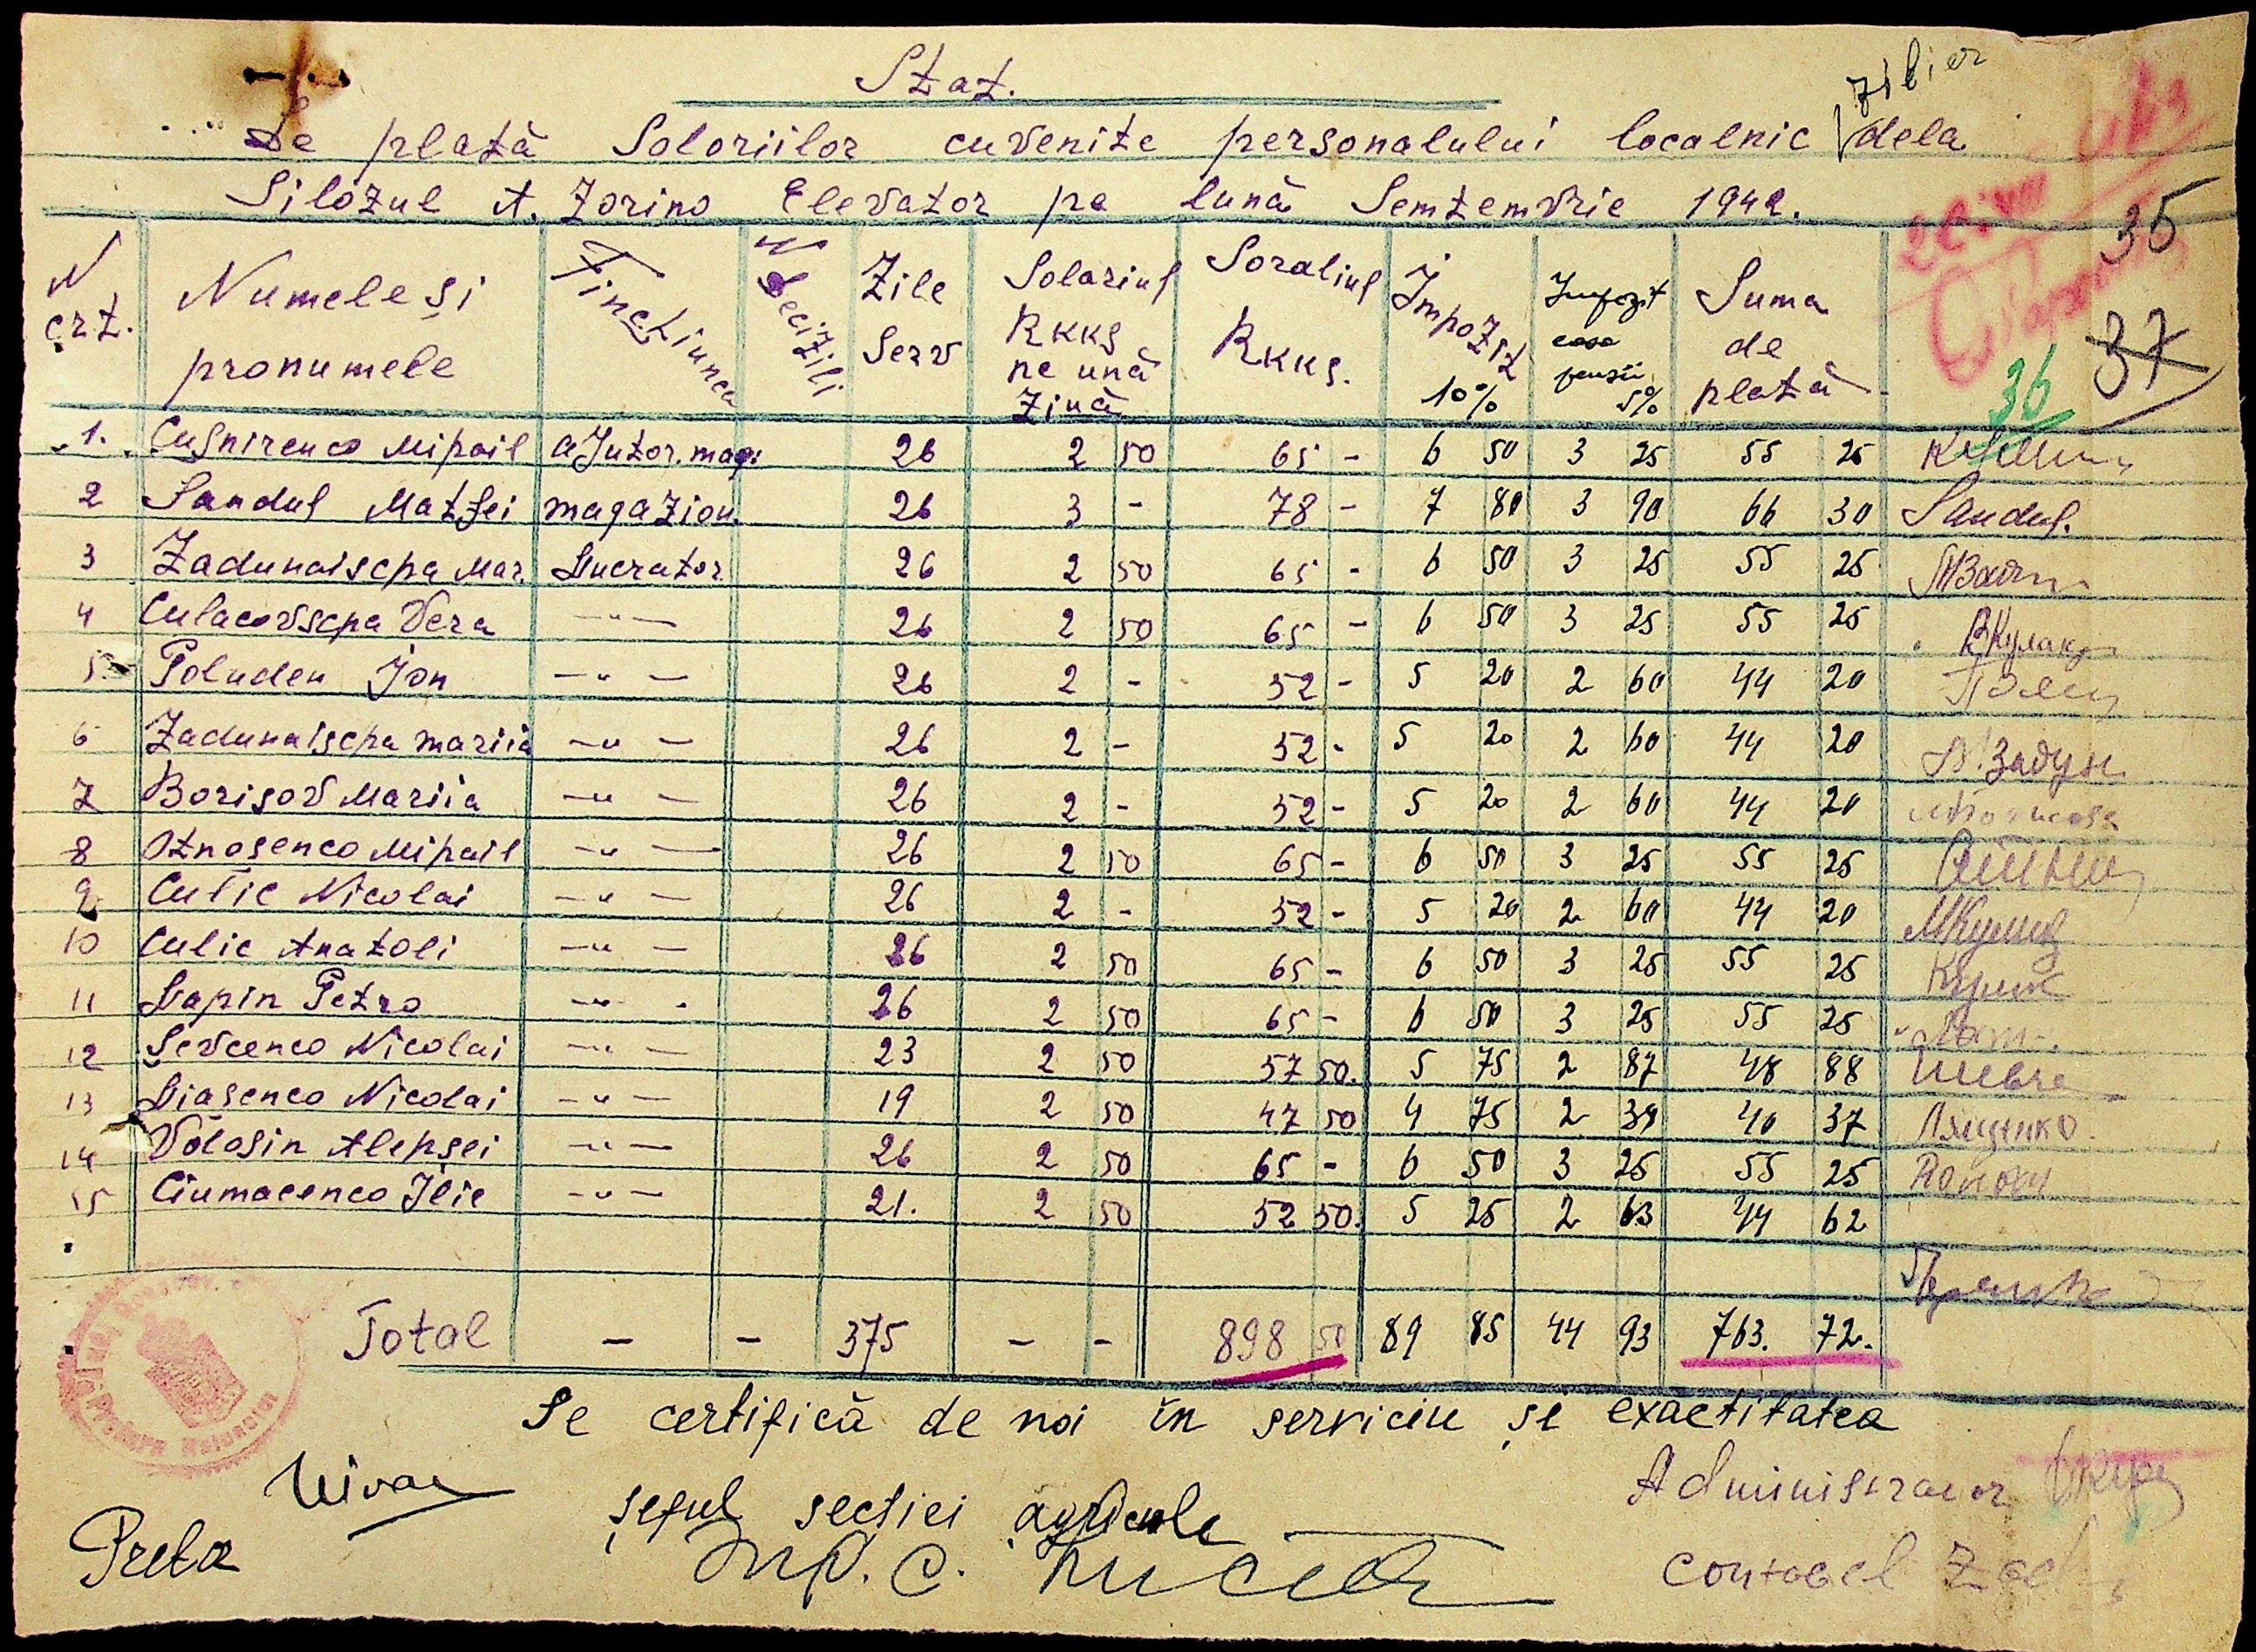 Stat.
zilier
De plată Soloriilor cuvenite personalului localnic dela
Silozul A. Zorino Elevator pe lună Semtemvrie 1942.
35
37
36
N crt. Numele și pronumele Finctiunea N Decizili Zile Serv Solariuș RKKS pe ună zină Soraliuș RKKS. Impozit 10% Impozit casa pensii 5% Suma de plată
1. Cușnirenco Mihail aJutor. mag. 26 2 50 65 - 6 50 3 25 55 25
2 Sanduș Matfei magazion. 26 3 - 78 - 7 80 3 90 66 30 Sanduș.
3 Zadunaischa Mar. Lucrator 26 2 50 65 - 6 50 3 25 55 25
4 Culacovscha Vera -"- 26 2 50 65 - 6 50 3 25 55 25 ВКулак
5. Poluden Jon -"- 26 2 - 52 - 5 20 2 60 44 20
6 Zadunaischa mariia -"- 26 2 - 52 - 5 20 2 60 44 20 Задун
7 Borisov Mariia -"- 26 2 - 52 - 5 20 2 60 44 20
8 Otnosenco Mihail -"- 26 2 50 65 - 6 50 3 25 55 25
9 Culic Nicolai -"- 26 2 - 52 - 5 20 2 60 44 20
10 Culic Anatoli -"- 26 2 50 65 - 6 50 3 25 55 25
11 Lapin Petro -"- 26 2 50 65 - 6 50 3 25 55 25
12 Șevcenco Nicolai -"- 23 2 50 57 50. 5 75 2 87 48 88 Шевче
13 Liașenco Nicolai -"- 19 2 50 47 50 4 75 2 38 40 37 Лященко.
14 Voloșin Alehsei -"- 26 2 50 65 - 6 50 3 25 55 25
15 Ciumacenco Ilie -"- 21. 2 50 52 50. 5 25 2 63 44 62
Total - - 375 - - 898 50 89 85 44 93 763. 72.
Se certifică de noi în serviciu și exactitatea
Administrator
șeful sectiei agricole
Pretor
Contabel